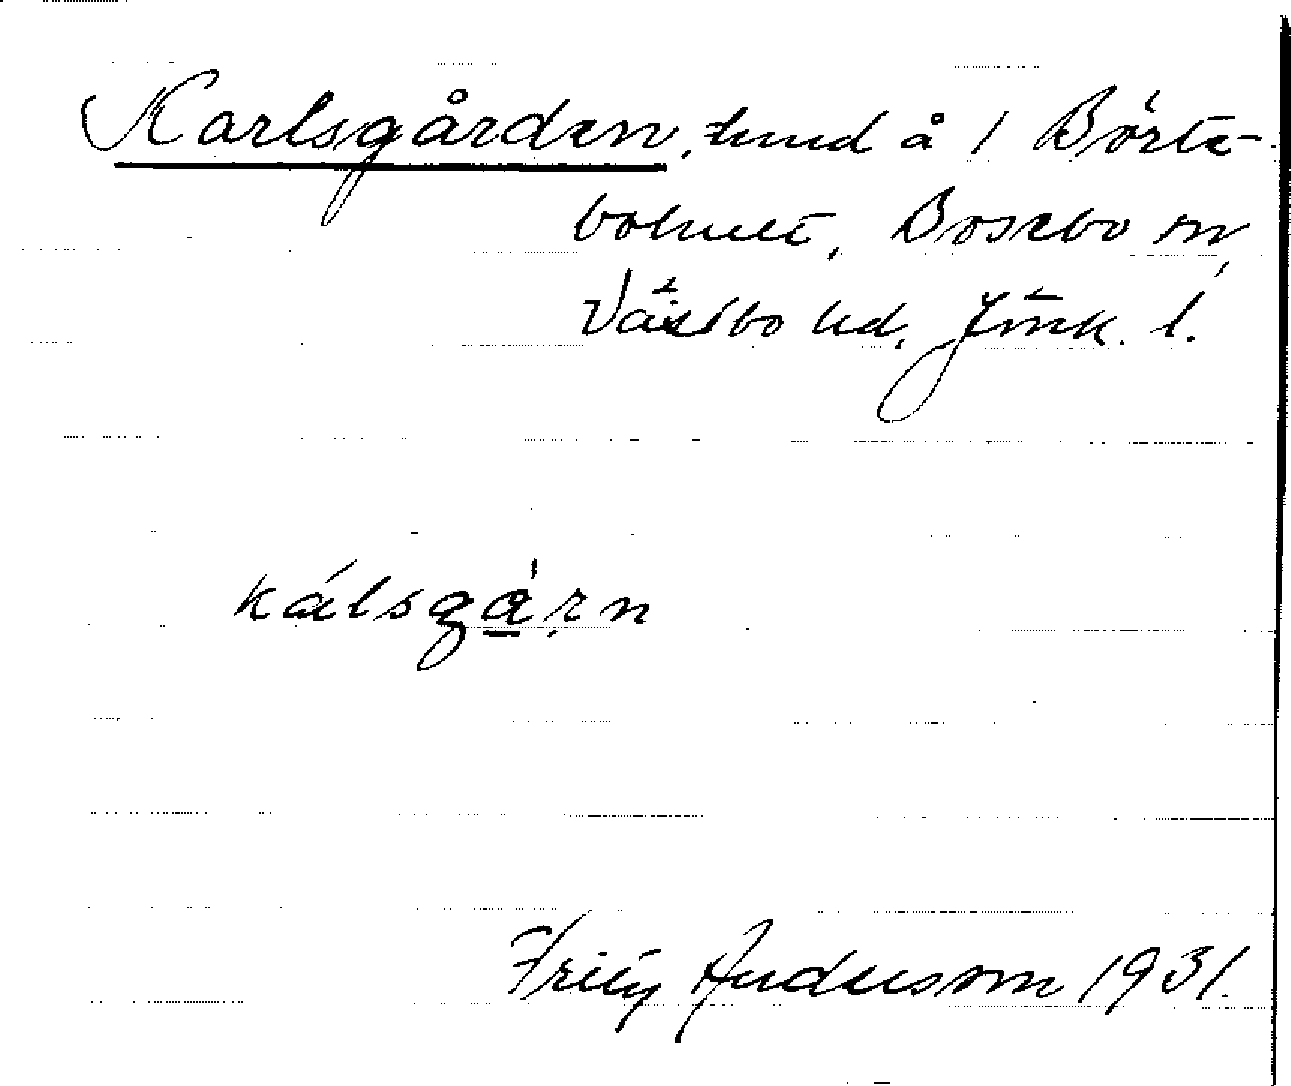 Karlsgården, hmd å 1 Börta-
bohult, Bosebo sn,
Västbo hd, Jönk. l.
kálsgá̱rn
Fritz Andersson 1931.